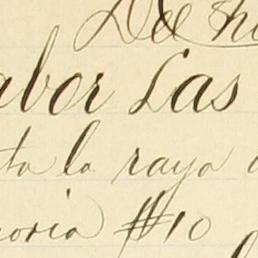 De h
abor Las
ta la raya
oria #10